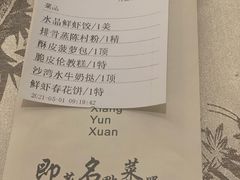 水晶鲜虾饺/1美
排骨蒸陈村粉/1精
酥皮菠萝包/1顶
脆皮伦教糕/1特
沙湾水牛奶挞/1顶
鲜虾春花饼/1特
2021-05-01 09:19:42
Xiang
Yun
Xuan
即 名 菜